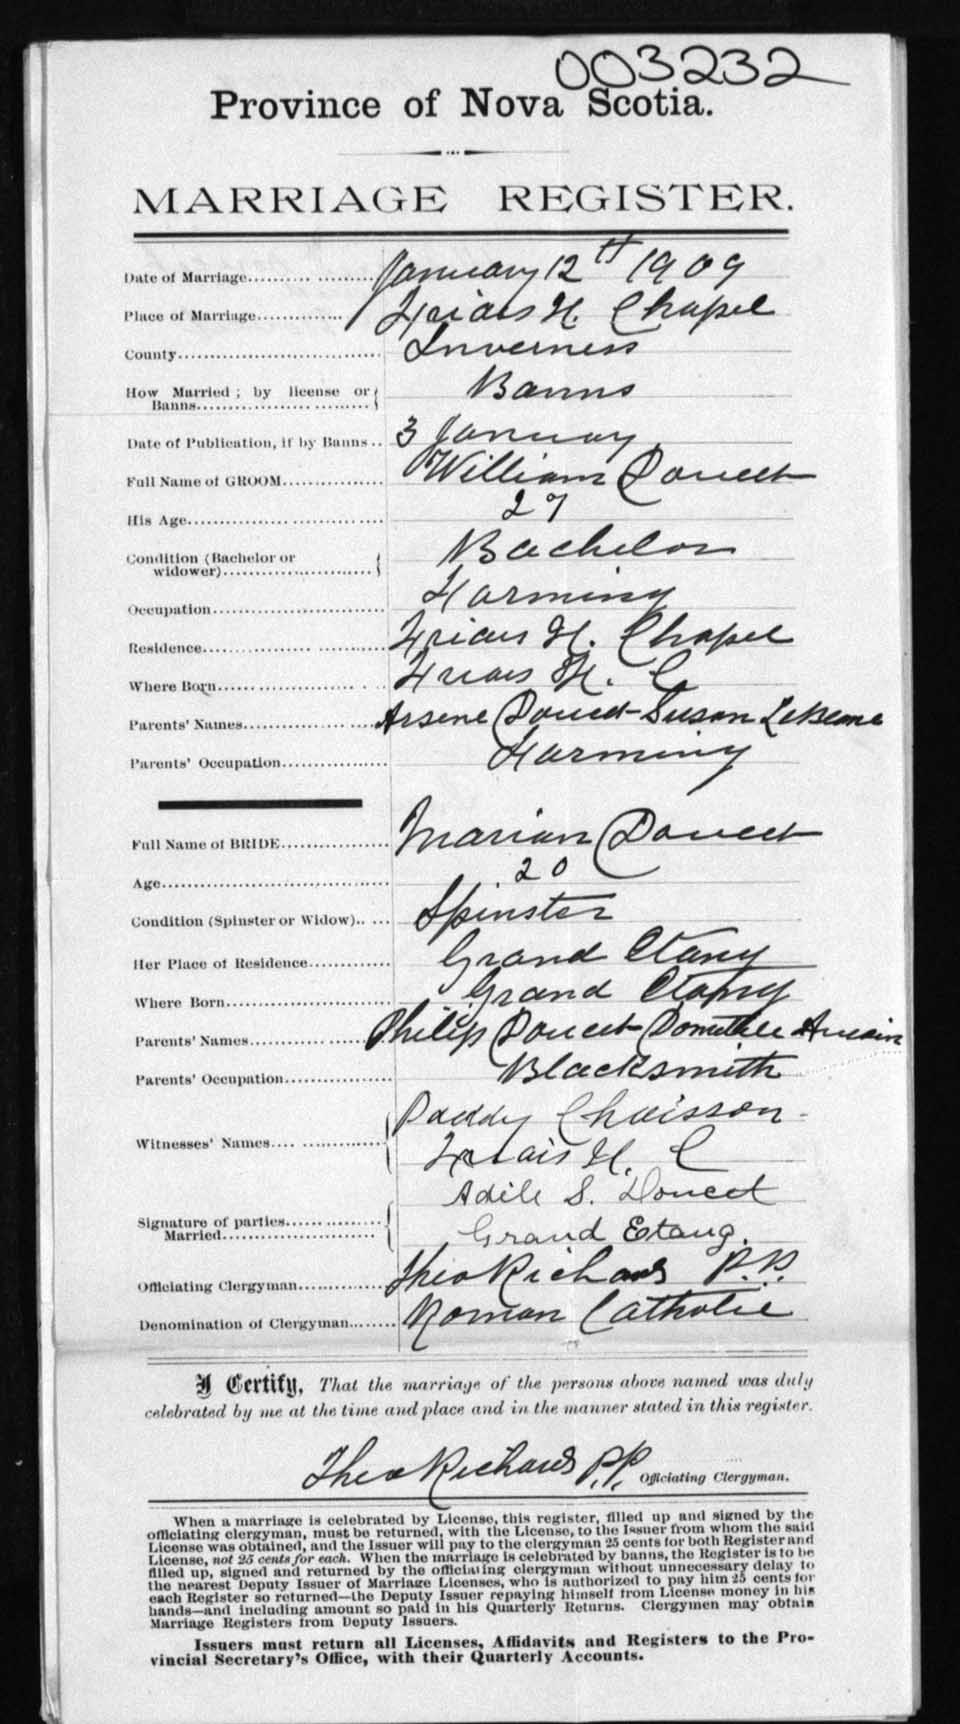 003232
Province of Nova Scotia.
MARRIAGE REGISTER.
Date of Marriage January 12th 1909
Place of Marriage Friars H. Chapel
County Inverness
How Married ; by license or
Banns Banns
Date of Publication, if by Banns 3 January
Full Name of GROOM William Doucet
His Age 27
Condition (Bachelor or
widower) Bachelor
Occupation Farming
Residence Friars H. Chapel
Where Born Friars H. C.
Parents' Names Arsene Doucet - Susan LeBlanc
Parents' Occupation Farming
Full Name of BRIDE Marian Doucet
Age 20
Condition (Spinster or Widow) Spinster
Her Place of Residence Grand Etang
Where Born Grand Etang
Parents' Names Philip Doucet -
Parents' Occupation Blacksmith
Witnesses' Names Paddy Chaisson
Friars H. C
Adile S. Doucet
Signature of parties
Married Grand Etang.
Officiating Clergyman Theo Richard P.P.
Denomination of Clergyman Roman Catholic
I Certify, That the marriage of the persons above named was duly
celebrated by me at the time and place and in the manner stated in this register.
Theo Richard P.P. Officiating Clergyman.
When a marriage is celebrated by License, this register, filled up and signed by the
officiating clergyman, must be returned, with the License, to the Issuer from whom the said
License was obtained, and the Issuer will pay to the clergyman 25 cents for both Register and
License, not 25 cents for each. When the marriage is celebrated by banns, the Register is to be
filled up, signed and returned by the officiating clergyman without unnecessary delay to
the nearest Deputy Issuer of Marriage Licenses, who is authorized to pay him 25 cents for
each Register so returned—the Deputy Issuer repaying himself from License money in his
hands—and including amount so paid in his Quarterly Returns. Clergymen may obtain
Marriage Registers from Deputy Issuers.
Issuers must return all Licenses, Affidavits and Registers to the Pro-
vincial Secretary's Office, with their Quarterly Accounts.